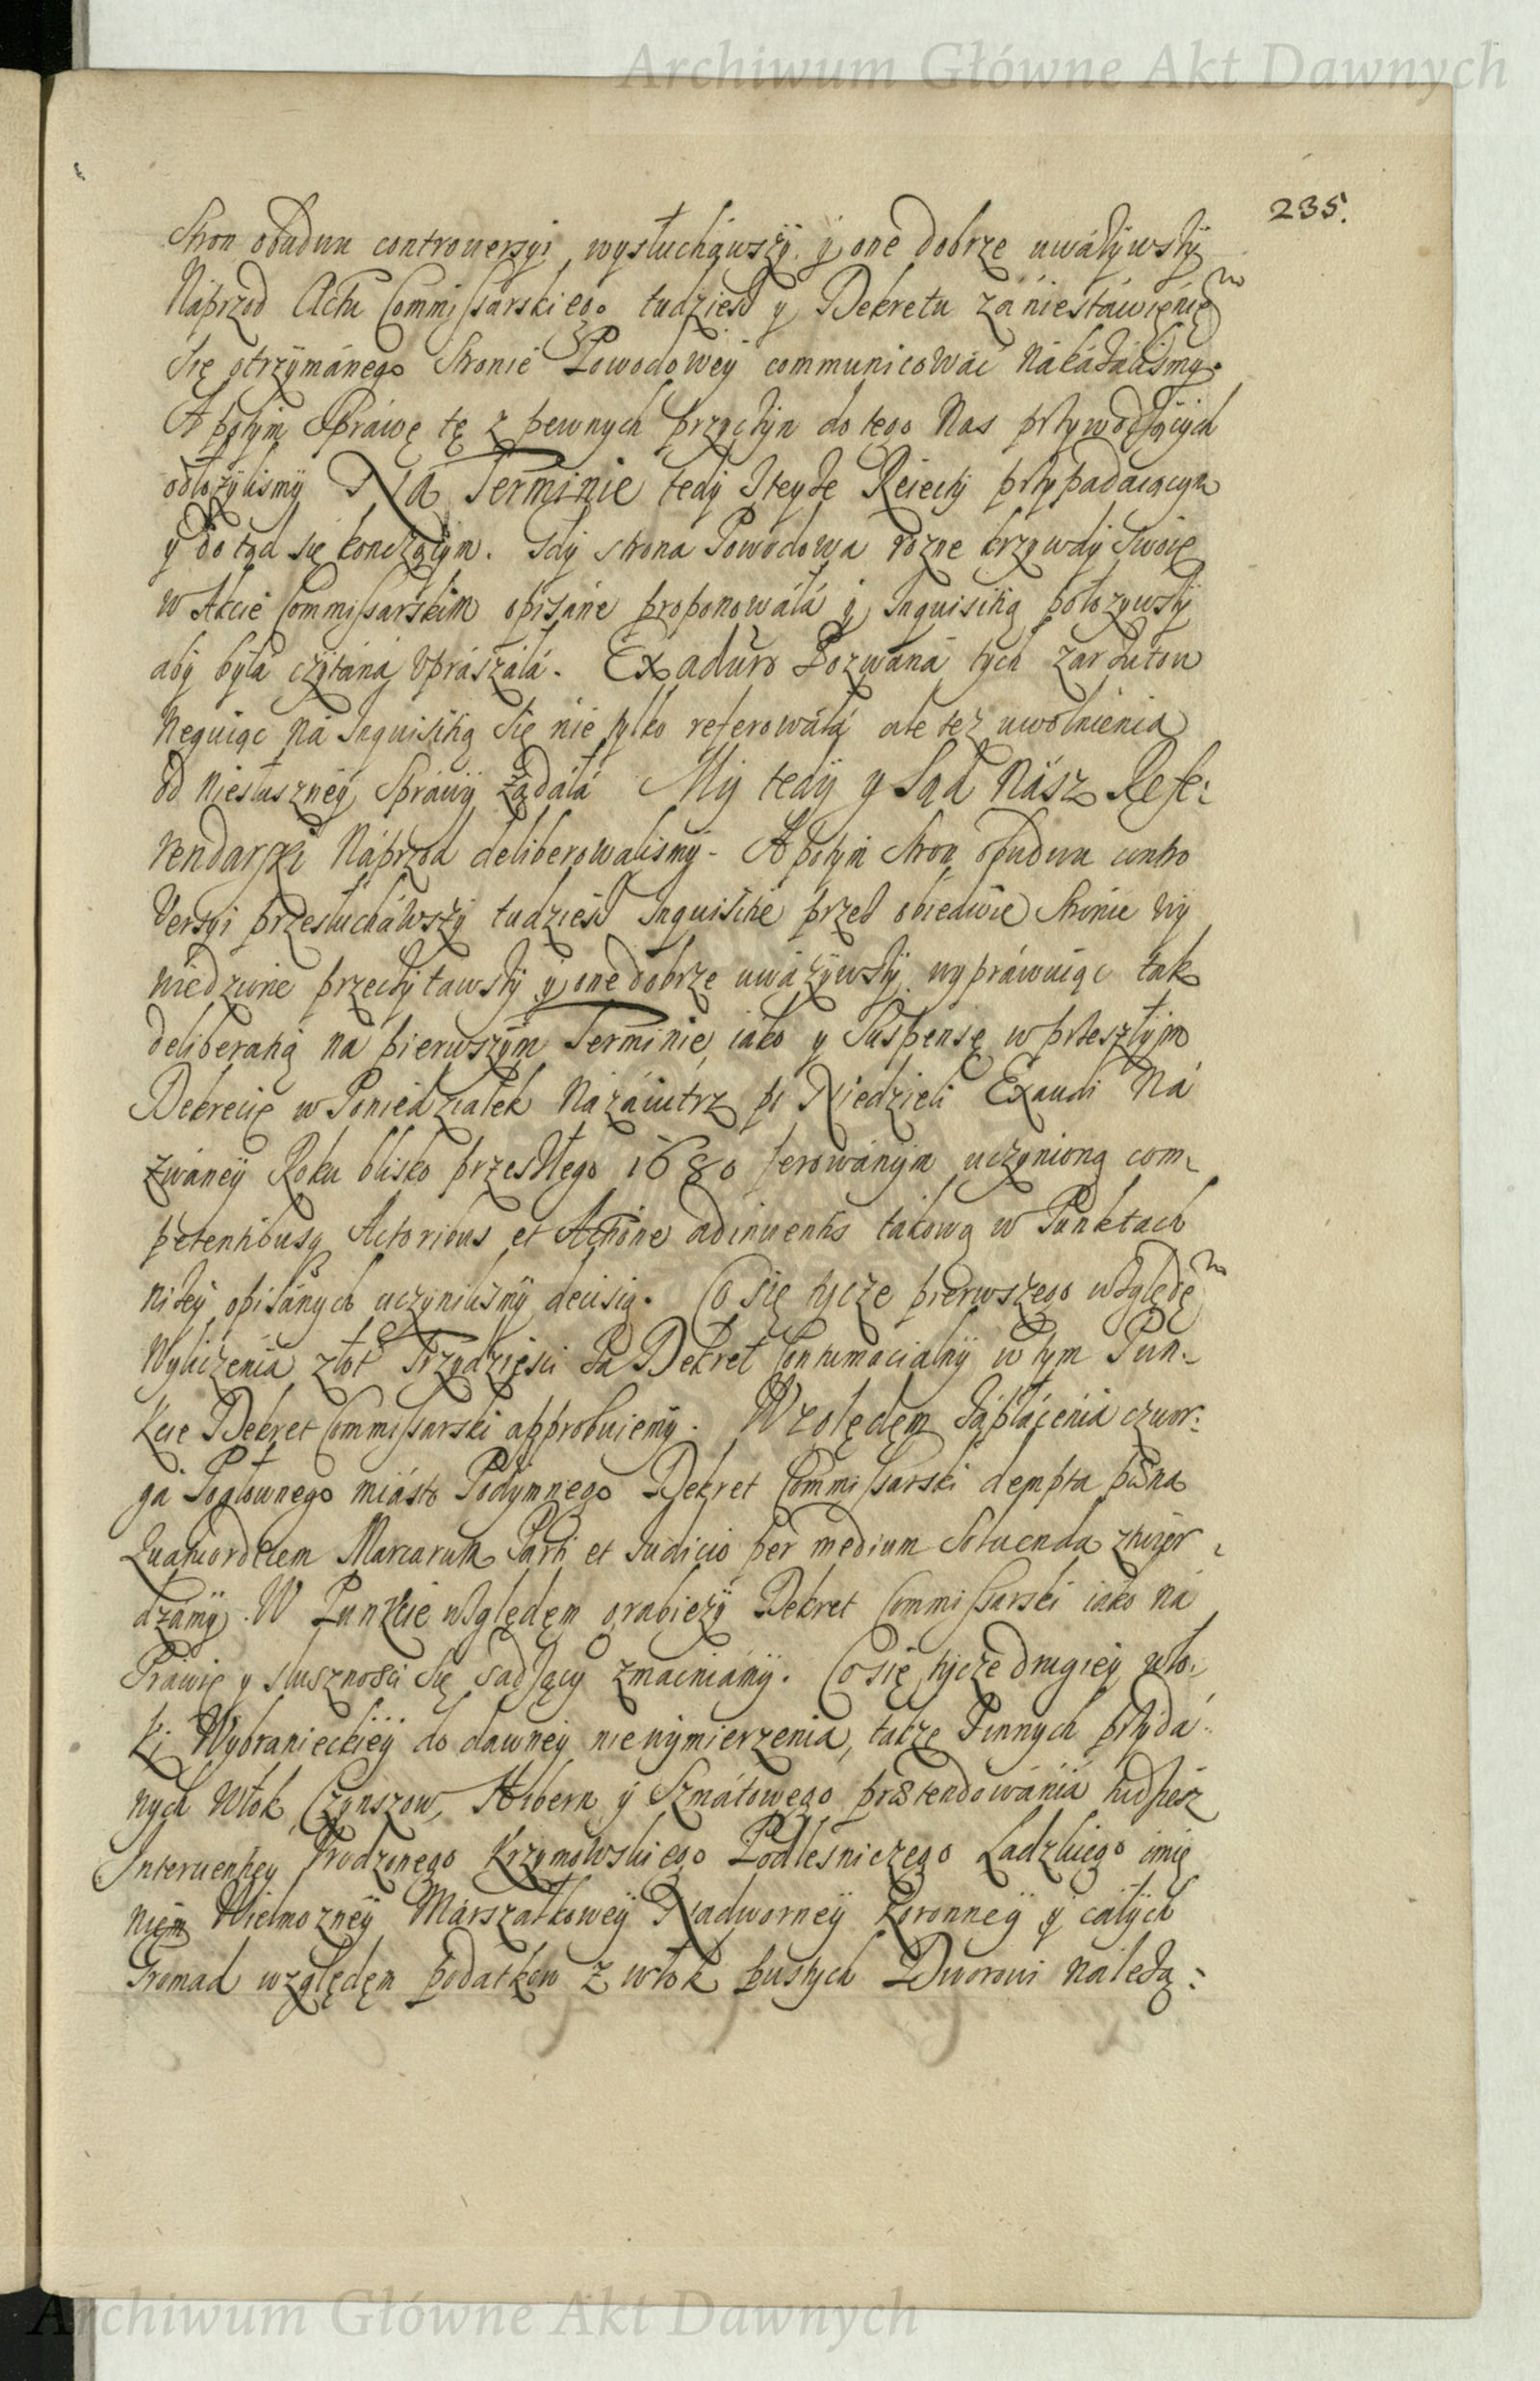 Archiwum Główne Akt Dawnych
235.
Stron obudwu controuersyi wysłuchawszy y one dobrze uważywszy
Naprzod Actu Commissarskiego tudziesz y Dekretu za niestawienie
się otrzymanego stronie Powodowey communicować nakazaliśmy.
A potym Sprawę tę z pewnych przyczyn do tego Nas przywodzących
odłożyliśmy Na Terminie tedy zteyże Rzeczy przypadaiącym
y dotąd się kończącym. Gdy strona Powodowa rożne krzywdy swoie
w Akcie Commissarskim opisane proponowała y Inquisitią położywszy
aby była czytana upraszała. Ex aduro Pozwana tych zarzutow
neguiąc na Inquisitią się nie tylko referowała ale też uwolnienia
od niesłuszney Sprawy żądała My tedy y Sąd Nasz Refe:
rendarski Naprzod deliberowaliśmy - A potym stron obudwu contro
versyi przesłuchawszy tudziesz Inquisitie przez obiedwie stronie wy
wiedzione przeczytawszy y one dobrze uważywszy wyprawuiąc tak
deliberatią na pierwszym Terminie iako y Suspensę w przeszłym
Dekrecie w Poniedziałek nazaiutrz po Niedzieli Exaudi Na
zwaney Roku blisko przeszłego 1680 ferowanym uczynioną com-
petentibusq Actoribus et Actione adinuentis takową w Punktach
niżey opisanych uczyniliśmy decisią. Co się tycze pierwszego względem
Wyliczenia złot Trzydzieści za Dekret Contumacialny w tym Pun-
kcie Dekret Commissarski approbuiemy. Względem zapłacenia czwor:
ga Pogłownego miasto Podymnego Dekret Commissarski dempta pœna
Quatuordecim Marcarum Parti et Iudicio per medium soluenda ztwier
dzamy. W Punkcie względem grabieży Dekret Commissarski iako na
Prawie y słuszności się sadzący zmacniamy. Co się tycze drugiey wło:
ki Wybranieckiey do dawney niewymierzenia, także Innych przyda-
nych Włok, Czynszow, Hibern y Szmatowego prætendowania tudziesz
Interuentiey Urodzonego Krzymowskiego Podleśniczego Ladzkiego imie
niem Wielmozney Marszałkowey Nadworney Koronney y całych
Gromad względem podatkow z włok pustych Dworowi należą:
Archiwum Główne Akt Dawnych